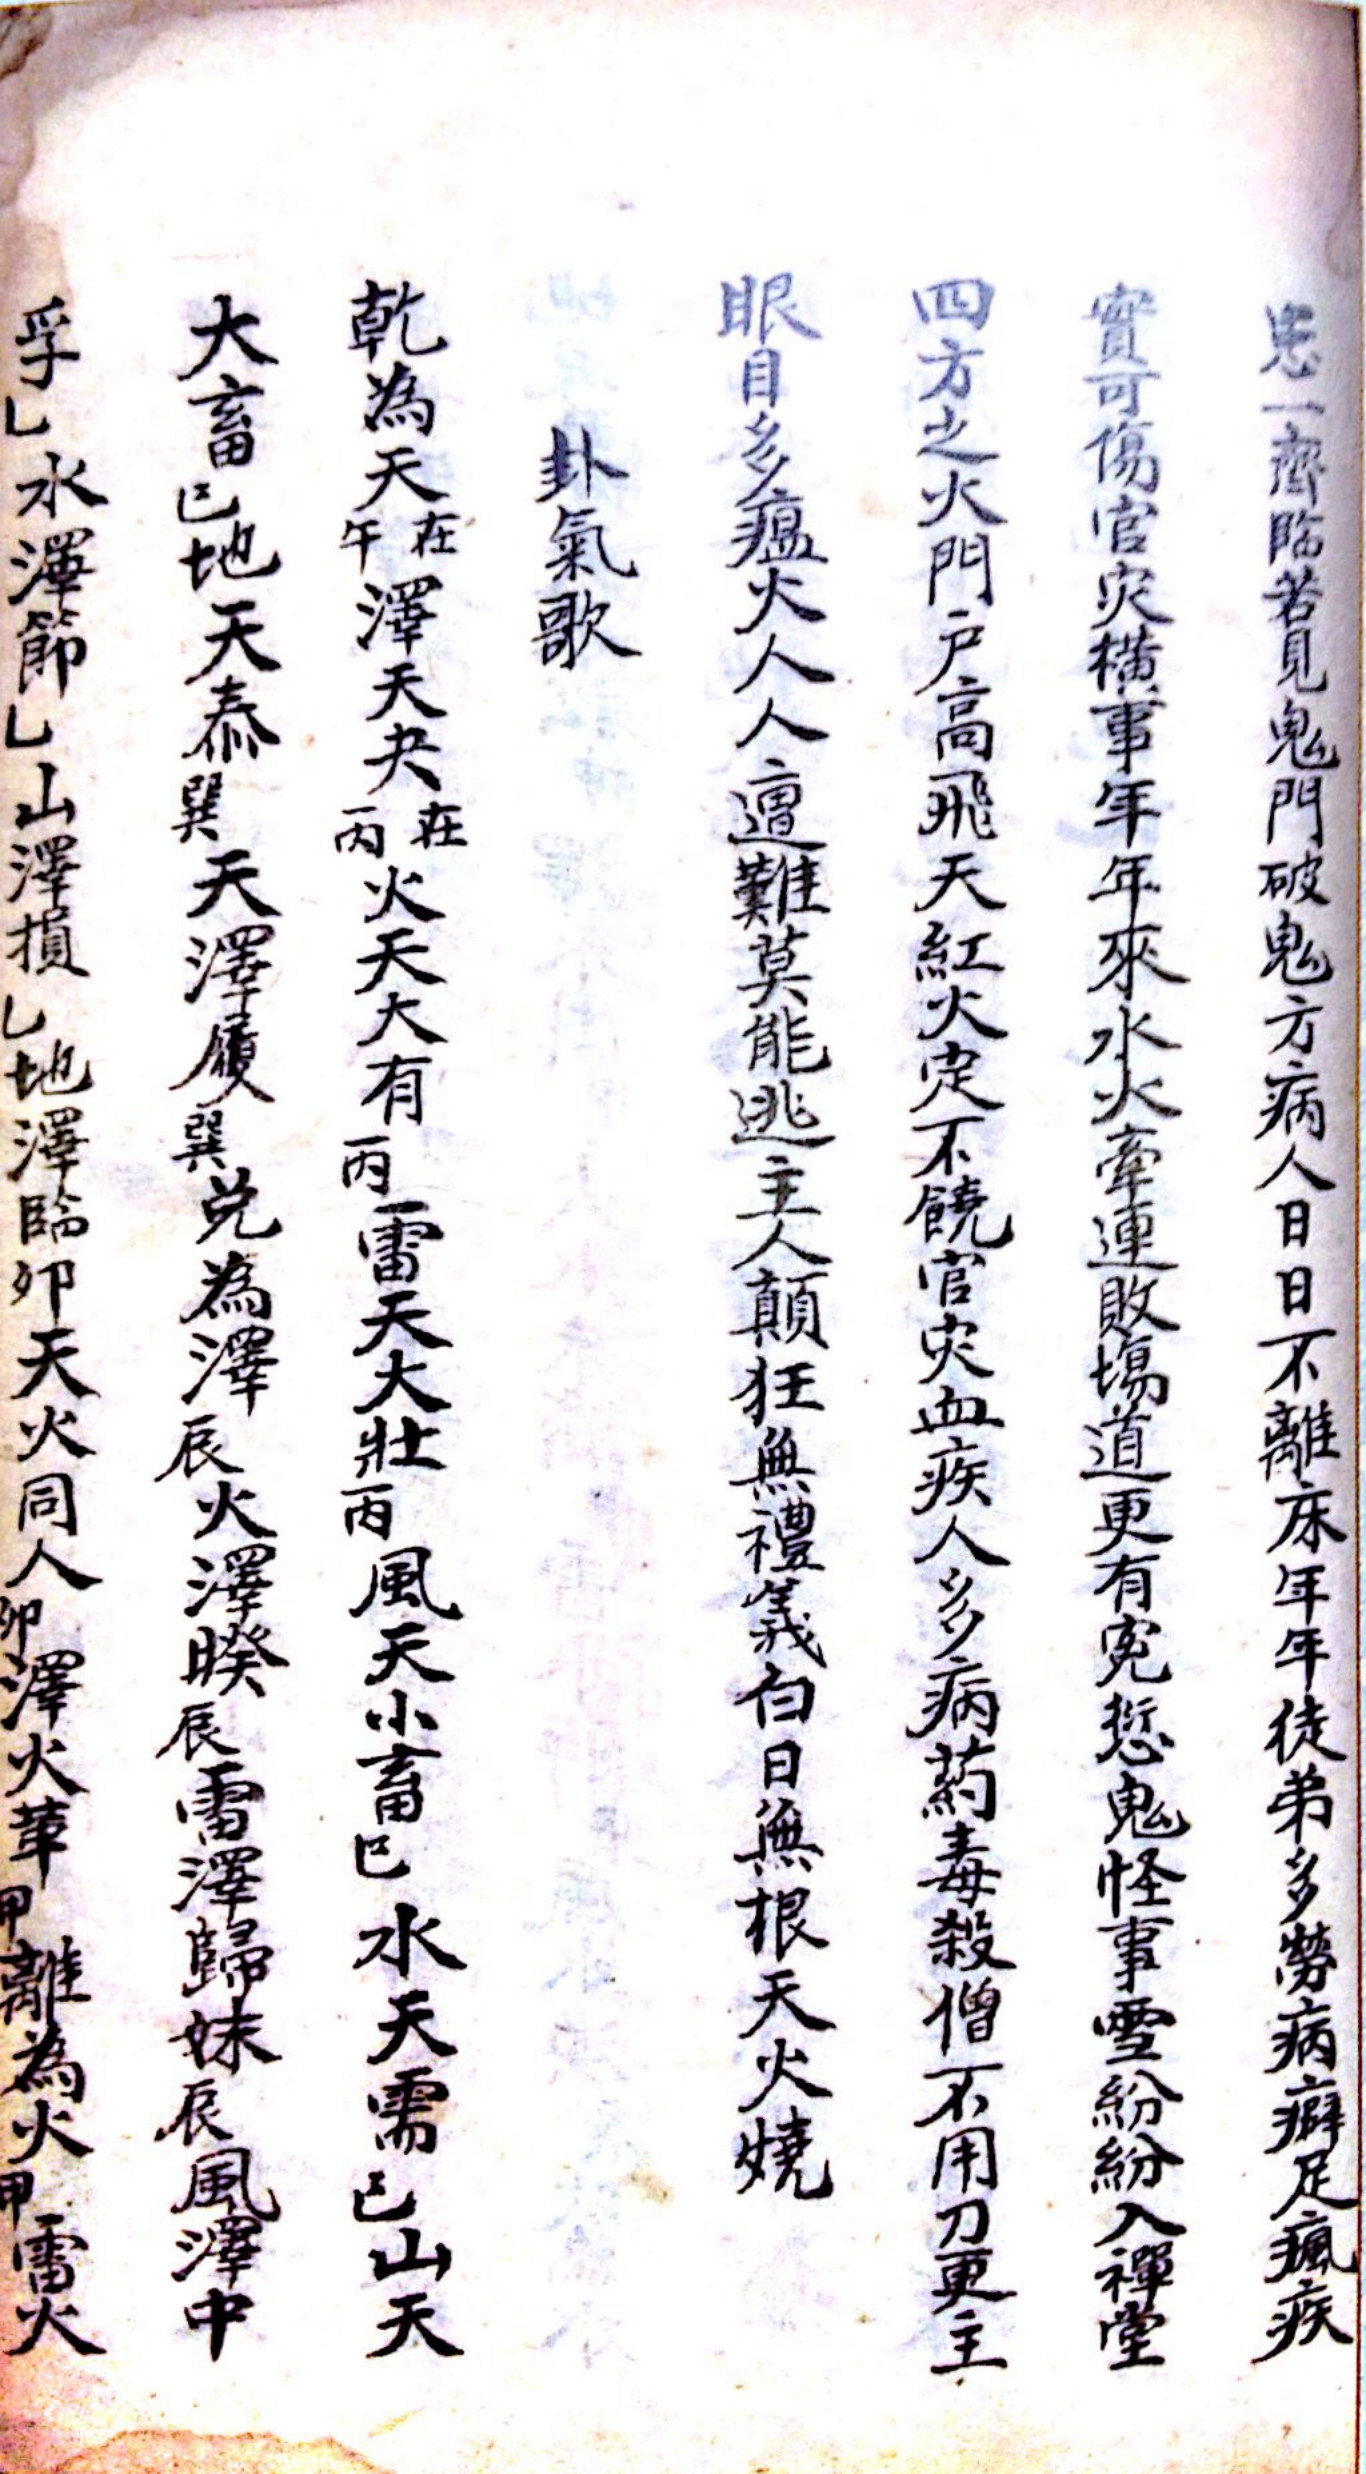 患一齊臨若見鬼門破鬼方病人日日不離床年年徒弟多勞病癖足瘋疾
實可傷官灾橫事年年來水火牽連敗塲道更有寃愆鬼怪事雪紛紛入禪堂
四方之火門户高飛天紅火定不饒官灾血疾人多病葯毒殺僧不用刀更主
眼目多瘟火人人遭難莫能逃主人顛狂無禮義白日無根天火燒
卦氣歌
乾為天在午澤天夬在丙火天大有丙雷天大壯丙風天小畜巳水天需巳山天
大畜巳地天泰巽天澤履巽兌為澤辰火澤睽辰雷澤歸妹辰風澤中
孚乚水澤節乚山澤損乚地澤臨卯天火同人卯澤火革甲離為火甲雷火